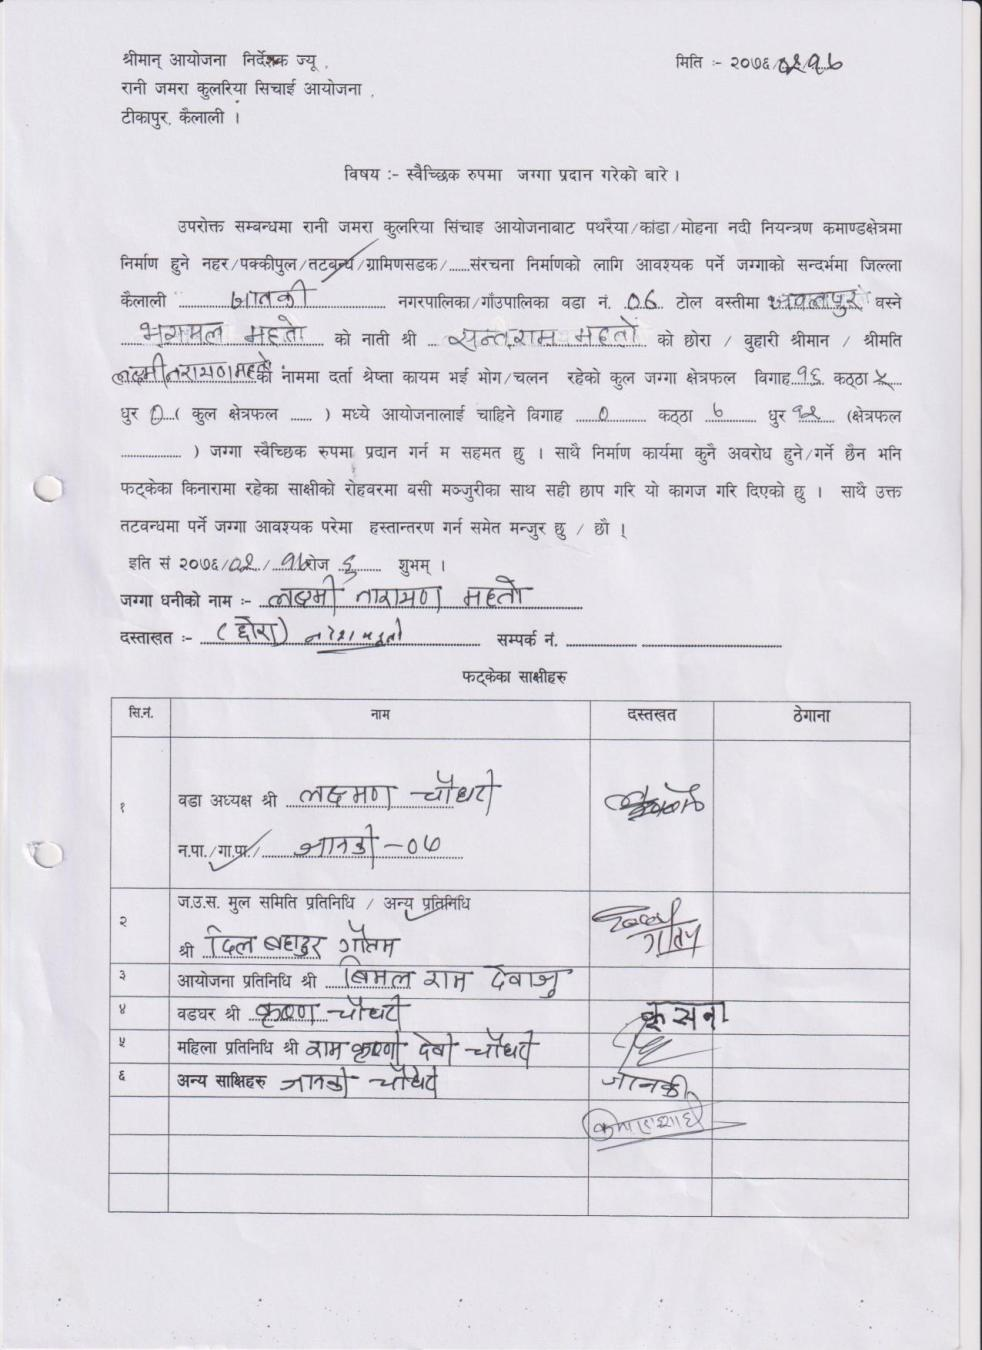 श्रीमान् आयोजना निर्देशक ज्यू ,
मिति :- २०७६/०२/१७
रानी जमरा कुलरिया सिचाई आयोजना ,
टीकापुर, कैलाली ।
विषय :- स्वैच्छिक रुपमा जग्गा प्रदान गरेको बारे ।
उपरोक्त सम्बन्धमा रानी जमरा कुलरिया सिंचाइ आयोजनाबाट पथरैया/कांडा/मोहना नदी नियन्त्रण कमाण्डक्षेत्रमा
निर्माण हुने नहर/पक्कीपुल/तटबन्ध/ग्रामिणसडक/......संरचना निर्माणको लागि आवश्यक पर्ने जग्गाको सन्दर्भमा जिल्ला
कैलाली जानकी नगरपालिका/गाँउपालिका वडा नं. ०६ टोल वस्तीमा वस्ने
महतो को नाती श्री सन्तराम महतो को छोरा / बुहारी श्रीमान / श्रीमति
लक्ष्मी नारायण महतो को नाममा दर्ता श्रेष्ता कायम भई भोग/चलन रहेको कुल जग्गा क्षेत्रफल विगाह १६ कठ्ठा
धुर ०...( कुल क्षेत्रफल ...... ) मध्ये आयोजनालाई चाहिने विगाह ०............ कठ्ठा ७ धुर १२ (क्षेत्रफल
.................. ) जग्गा स्वैच्छिक रुपमा प्रदान गर्न म सहमत छु । साथै निर्माण कार्यमा कुनै अवरोध हुने/गर्ने छैन भनि
फट्केका किनारामा रहेका साक्षीको रोहवरमा बसी मञ्जुरीका साथ सही छाप गरि यो कागज गरि दिएको छु । साथै उक्त
तटवन्धमा पर्ने जग्गा आवश्यक परेमा हस्तान्तरण गर्न समेत मन्जुर छु / छौ ।
इति सं २०७६/०२/१७ रोज ६ शुभम् ।
जग्गा धनीको नाम :- लक्ष्मी नारायण महतो
दस्ताखत :- (छोरा) नरेश महतो सम्पर्क नं. ....................
फट्केका साक्षीहरु
सि.नं. नाम दस्तखत ठेगाना
१ वडा अध्यक्ष श्री लक्ष्मण चौधरी
न.पा./गा.पा./ जानकी -०७
२ ज.उ.स. मुल समिति प्रतिनिधि / अन्य प्रतिनिधि
श्री दिल बहादुर गौतम
३ आयोजना प्रतिनिधि श्री बिमल राम देवाजु
४ वडघर श्री कृष्ण चौधरी कृसना
५ महिला प्रतिनिधि श्री राम कृष्णी देवी चौधरी
६ अन्य साक्षिहरु जानकी चौधरी जानकी